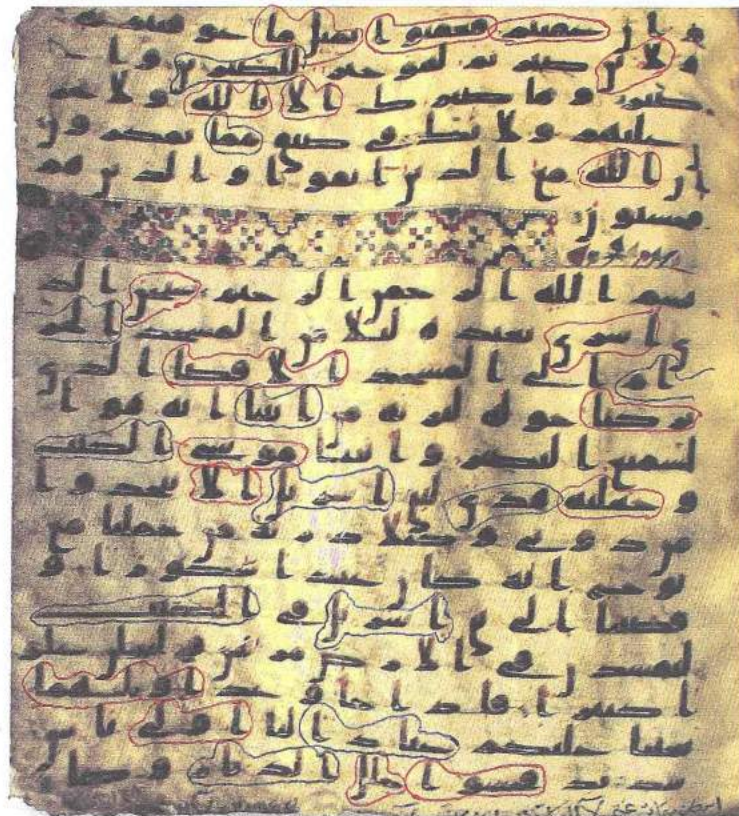 وان عقبتم فعقبوا بمثل ما عوقبتم به
ولئن صبرتم لهو خير للصبرين وا
صبر وما صبرك الا بالله ولا تحزن
عليهم ولا تك في ضيق مما يمكرون
ان الله مع الذين اتقوا والذين هم
محسنون
بسم الله الرحمن الرحيم سبحن الذ
ي اسرى بعبده ليلا من المسجد الحر
ام الى المسجد الاقصا الذي
بركنا حوله لنريه من ايتنا انه هو ا
لسميع البصير واتينا موسى الكتب
وجعلنه هدى لبني اسريل الا تتخذوا
من دوني وكيلا ذرية من حملنا مع
نوح انه كان عبدا شكورا و
قضينا الى بني اسريل في الكتب
لتفسدن في الارض مرتين ولتعلن علو
ا كبيرا فاذا جا وعد اوليهما
بعثنا عليكم عبادا لنا اولي باس
شديد فجاسوا خلل الديار وكان